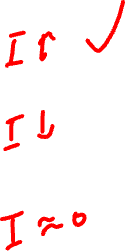 I ↑ ✓
I ↓
I ≈ 0